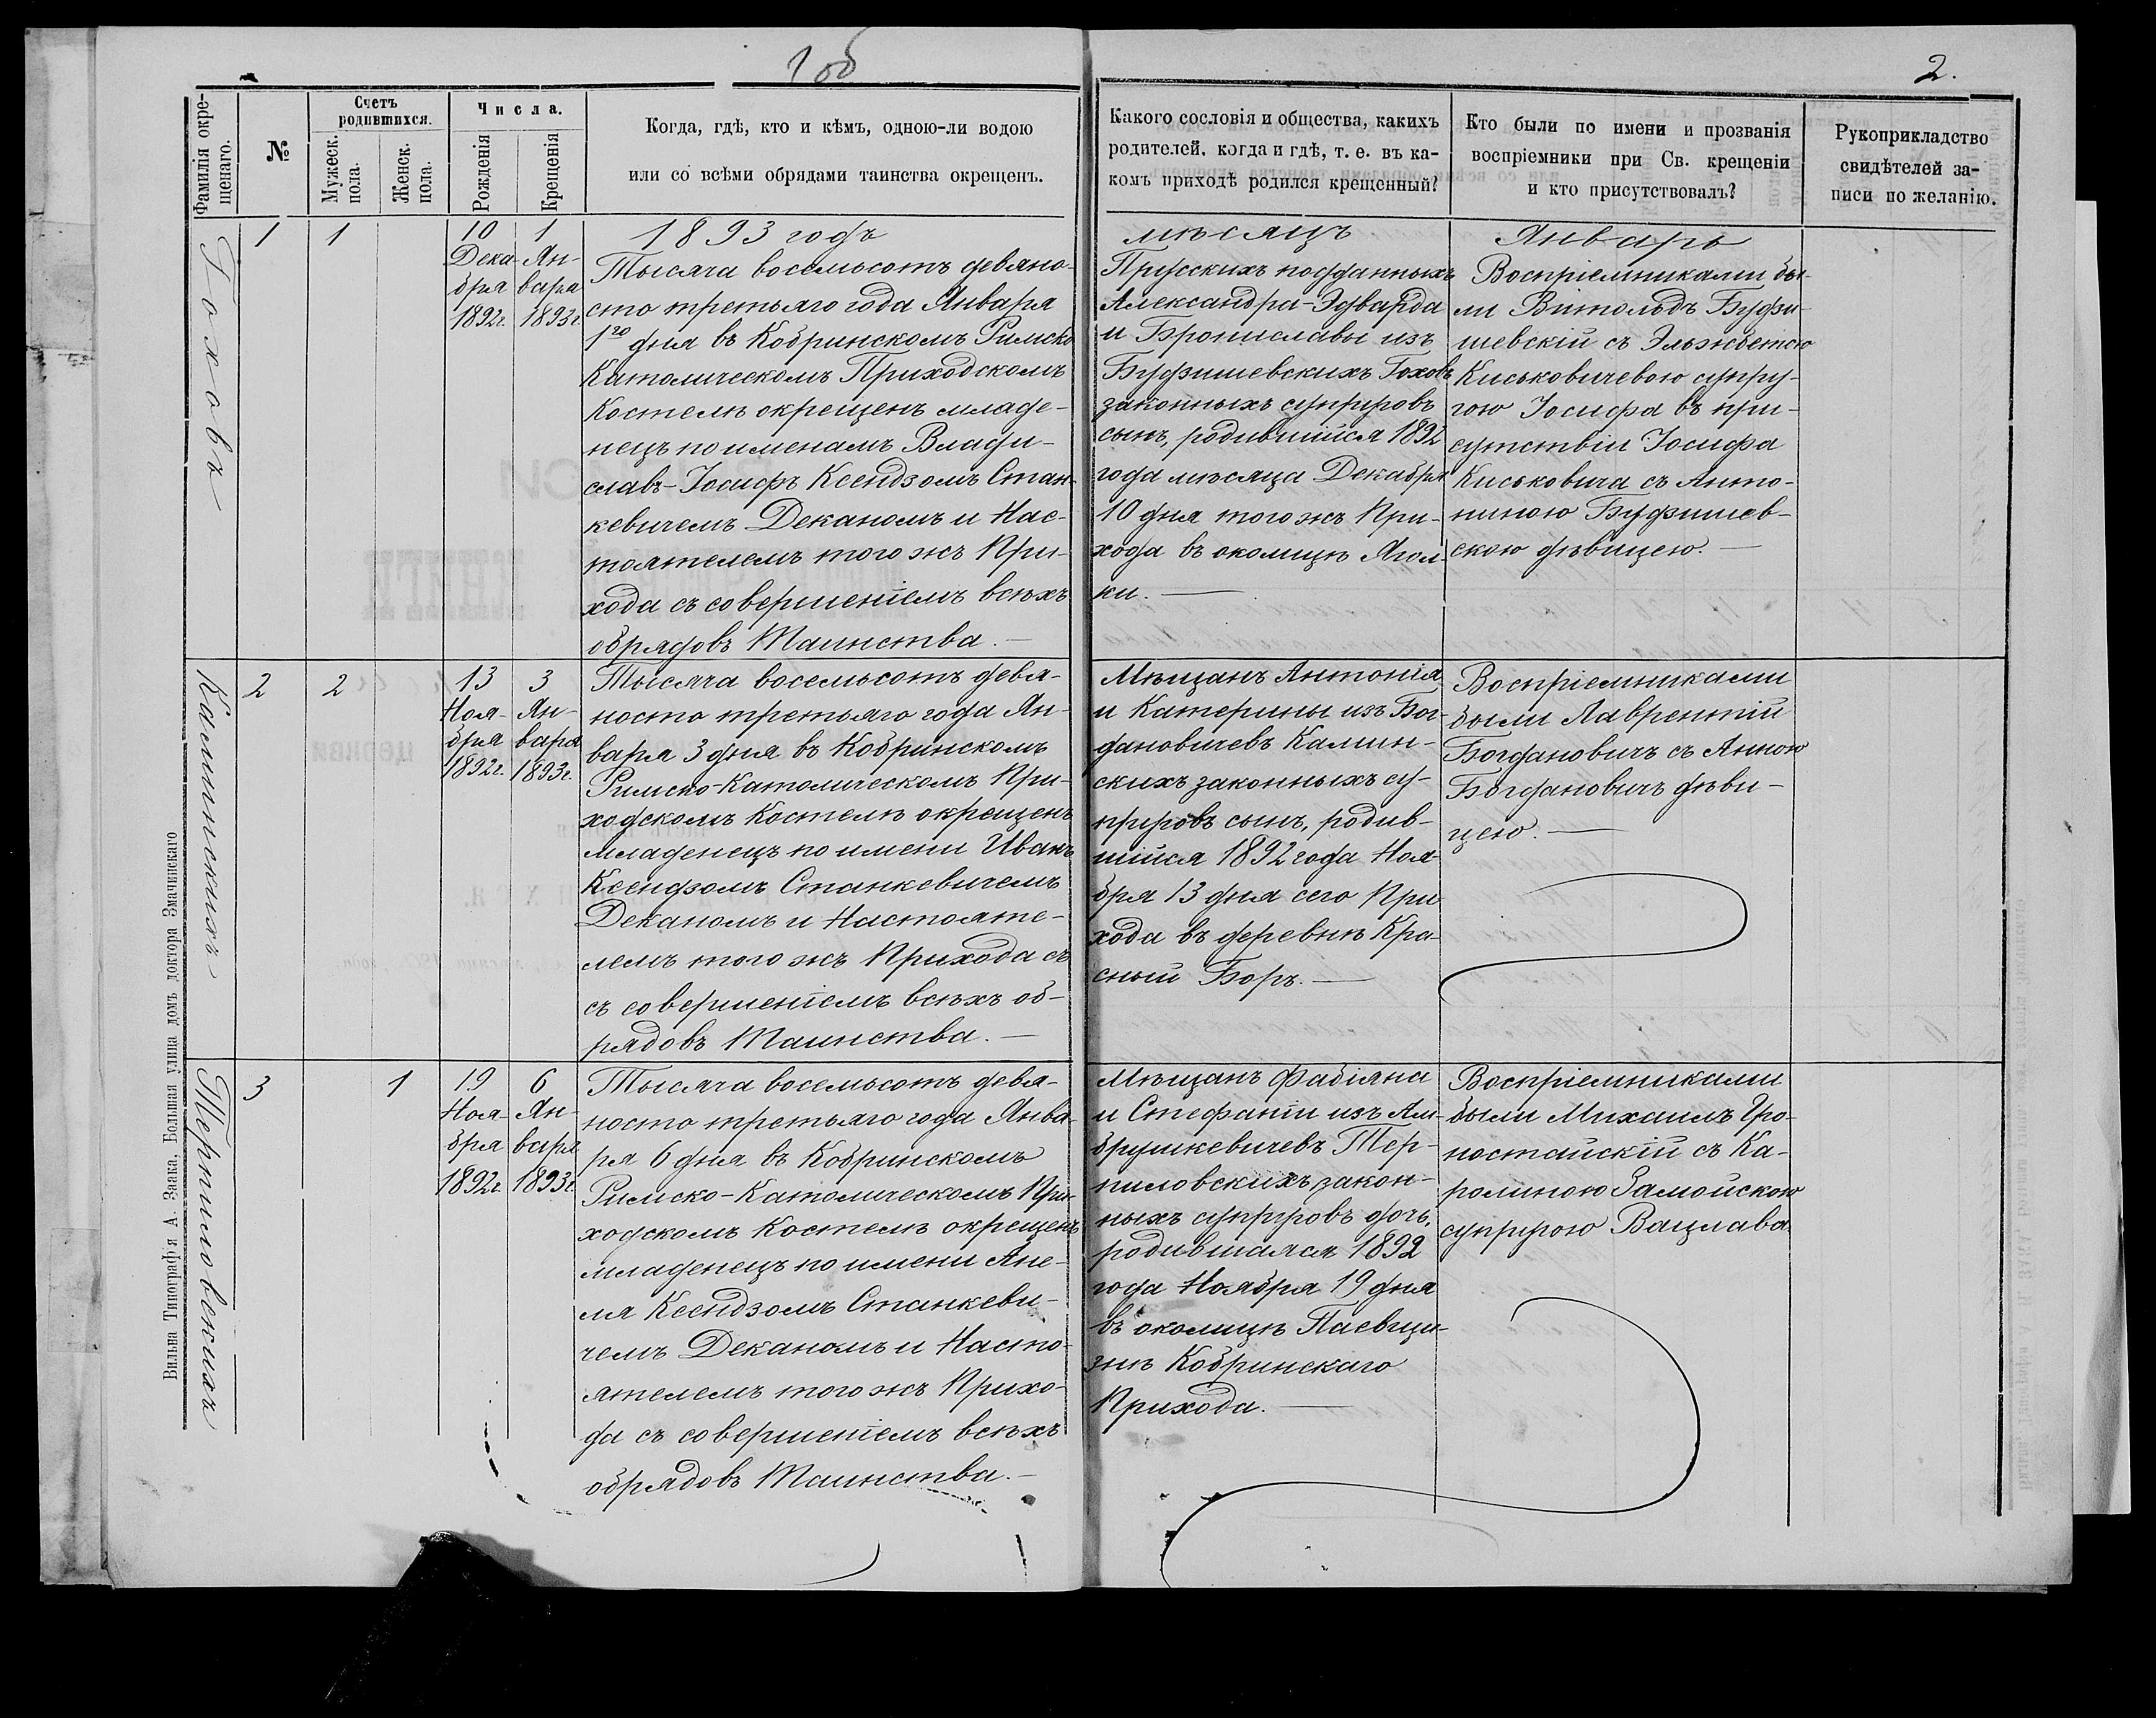 1 об
2.
Фамилія окре-
щенаго.
№
Счетъ
родившихся.
Мужеск.
пола.
Женск.
пола.
Числа.
Рожденія
Крещенія
Когда, гдѣ, кто и кѣмъ, одною-ли водою
или со всѣми обрядами таинства окрещенъ.
Какого сословія и общества, какихъ
родителей, когда и гдѣ, т. е. въ ка-
комъ приходѣ родился крещенный?
Кто были по имени и прозванія
воспріемники при Св. крещеніи
и кто присутствовалъ?
Рукоприкладство
свидѣтелей за-
писи по желанію.
Гоховъ
1
1
10
Дека-
бря
1892г.
1
Ян-
варя
1893г.
1893 годъ
Тысяча восемьсотъ девяно-
сто третьяго года Января
1го дня въ Кобринскомъ Римско
Католическомъ Приходскомъ
Костелѣ окрещенъ младе-
нецъ по именамъ Влади-
славъ-Іосифъ Ксендзомъ Стан-
кевичемъ Деканомъ и Нас-
тоятелемъ того жъ При-
хода съ совершеніемъ всѣхъ
обрядовъ Таинства.
мѣсяцъ
Прусскихъ подданныхъ
Александра-Эдварда
и Брониславы изъ
Будзишевскихъ Гоховъ
законныхъ супруговъ
сынъ, родившійся 1892
года мѣсяца Декабря
10 дня того жъ При-
хода въ околицѣ Ягел-
ки.
Январь
Воспріемниками бы-
ли Витольдъ Будзи-
шевскій съ Эльжбетою
Киськовичевою супру-
гою Іосифа въ при-
сутствіи Іосифа
Киськовича съ Анто-
ниною Будзишев-
скою дѣвицею.
Калинскихъ
2
2
13
Ноя-
бря
1892г.
3
Ян-
варя
1893г.
Тысяча восемьсотъ девя-
носто третьяго года Ян-
варя 3 дня въ Кобринскомъ
Римско-Католическомъ При-
ходскомъ Костелѣ окрещенъ
младенецъ по имени Иванъ
Ксендзомъ Станкевичемъ
Деканомъ и Настояте-
лемъ того жъ Прихода съ
съ совершеніемъ всѣхъ об-
рядовъ Таинства.
Мѣщанъ Антонія
и Катерины изъ Бог-
дановичевъ Калин-
скихъ законныхъ су-
пруговъ сынъ, родив-
шійся 1892 года Ноя-
бря 13 дня сего При
хода въ деревнѣ Кра-
сный Боръ.
Воспріемниками
были Лаврентій
Богдановичъ съ Анною
Богдановичъ дѣви-
цею.
Терпиловскихъ
3
1
19
Ноя-
бря
1892г.
6
Ян-
варя
1893г.
Тысяча восемьсотъ девя-
носто третьяго года Янва-
ря 6 дня въ Кобринскомъ
Римско-Католическомъ При-
ходскомъ Костелѣ окрещенъ
младенецъ по имени Ане-
ля Ксендзомъ Станкеви-
чемъ Деканомъ и Насто-
ятелемъ того жъ Прихо-
да съ совершеніемъ всѣхъ
обрядовъ Таинства.
Мѣщанъ Фабіяна
и Стефаніи изъ Ам-
брушкевичевъ Тер-
пиловскихъ закон-
ныхъ супруговъ дочь,
родившаяся 1892
года Ноября 19 дня
въ околицѣ Паевщи-
знѣ Кобринскаго
Прихода.
Воспріемниками
были Михаилъ Гро-
ностайскій съ Ка-
ролиною Замойскою
супругою Вацлава.
Вильна Типографія А. Заака, Большая улица домъ доктора Змачинскаго